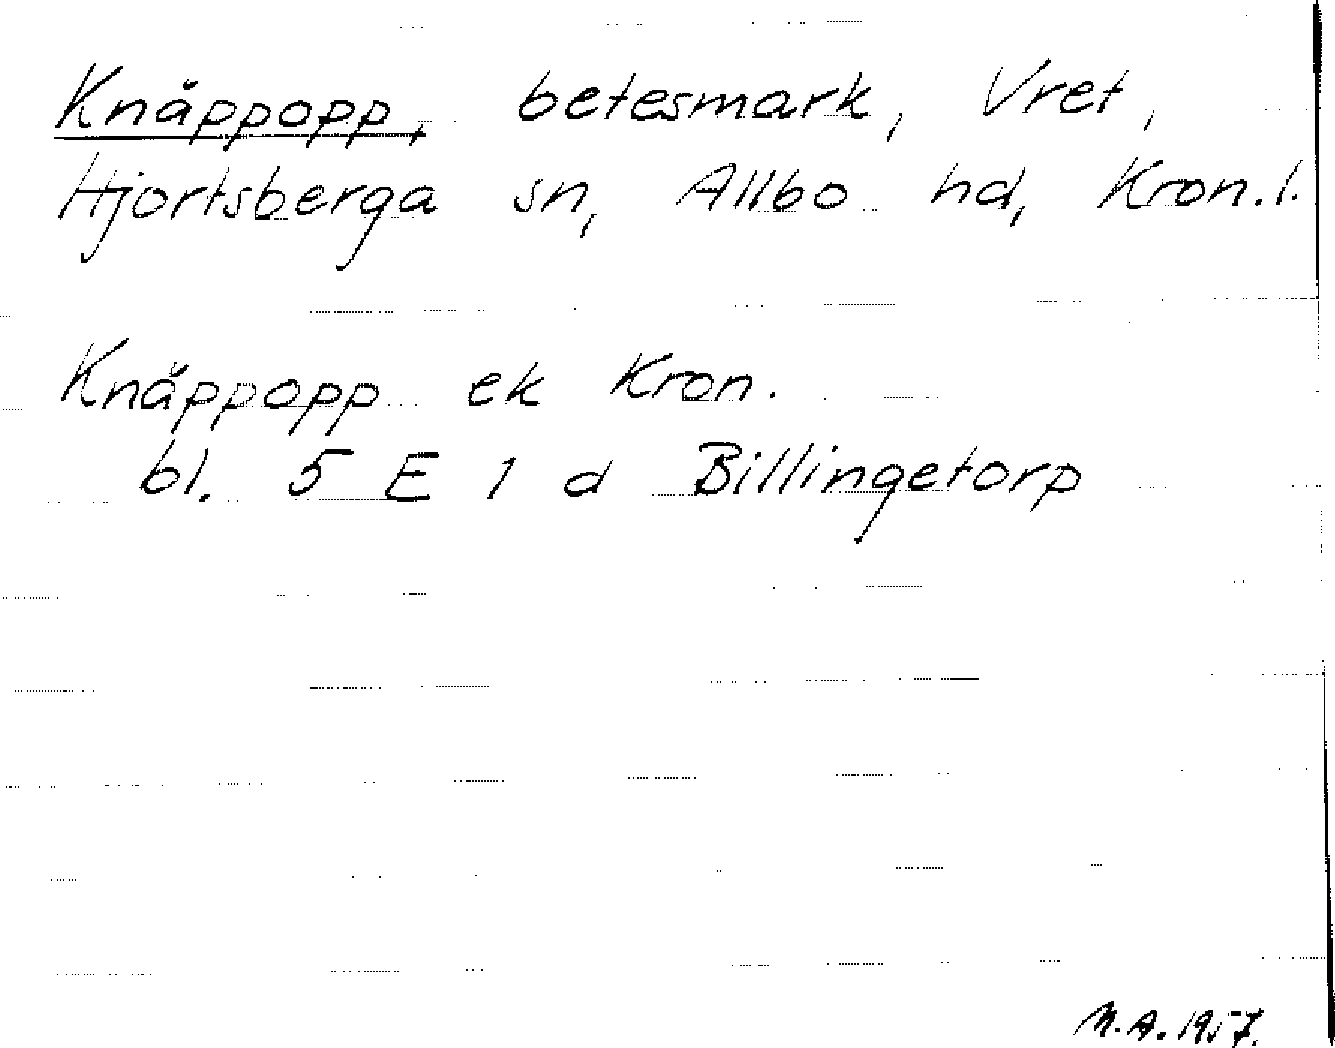 Knäppopp, betesmark, Vret,
Hjortsberga sn, Allbo hd, Kron.l.
Knäppopp ek Kron.
bl. 5 E 1 d Billingetorp
M.A. 1957.